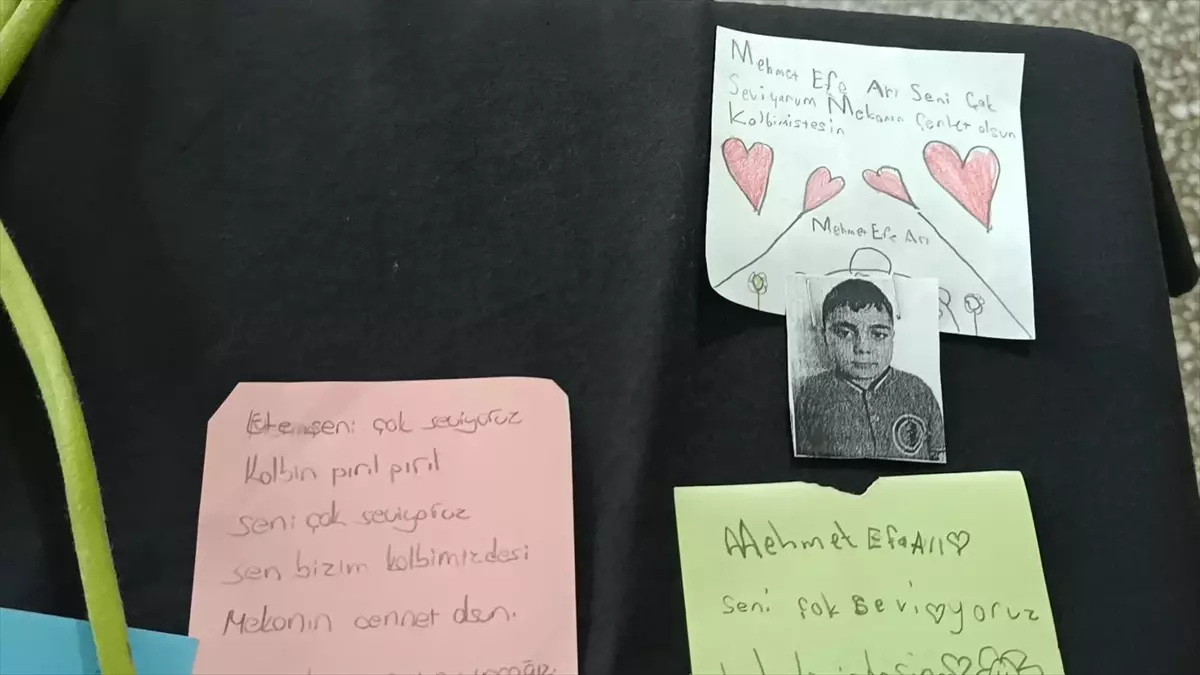 Mehmet Efe Arı Seni Çok
Seviyorum Mekanın Çenlet olsun
Kalbimistesin
Mehmet Efe Arı
Efe seni çok seviyoruz
Kalbin pırıl pırıl
seni çok seviyoruz
sen bizim kalbimizdesi
Mekanın cennet olsun.
Mehmet Efe Arı♡
seni çok sevi♡yoruz